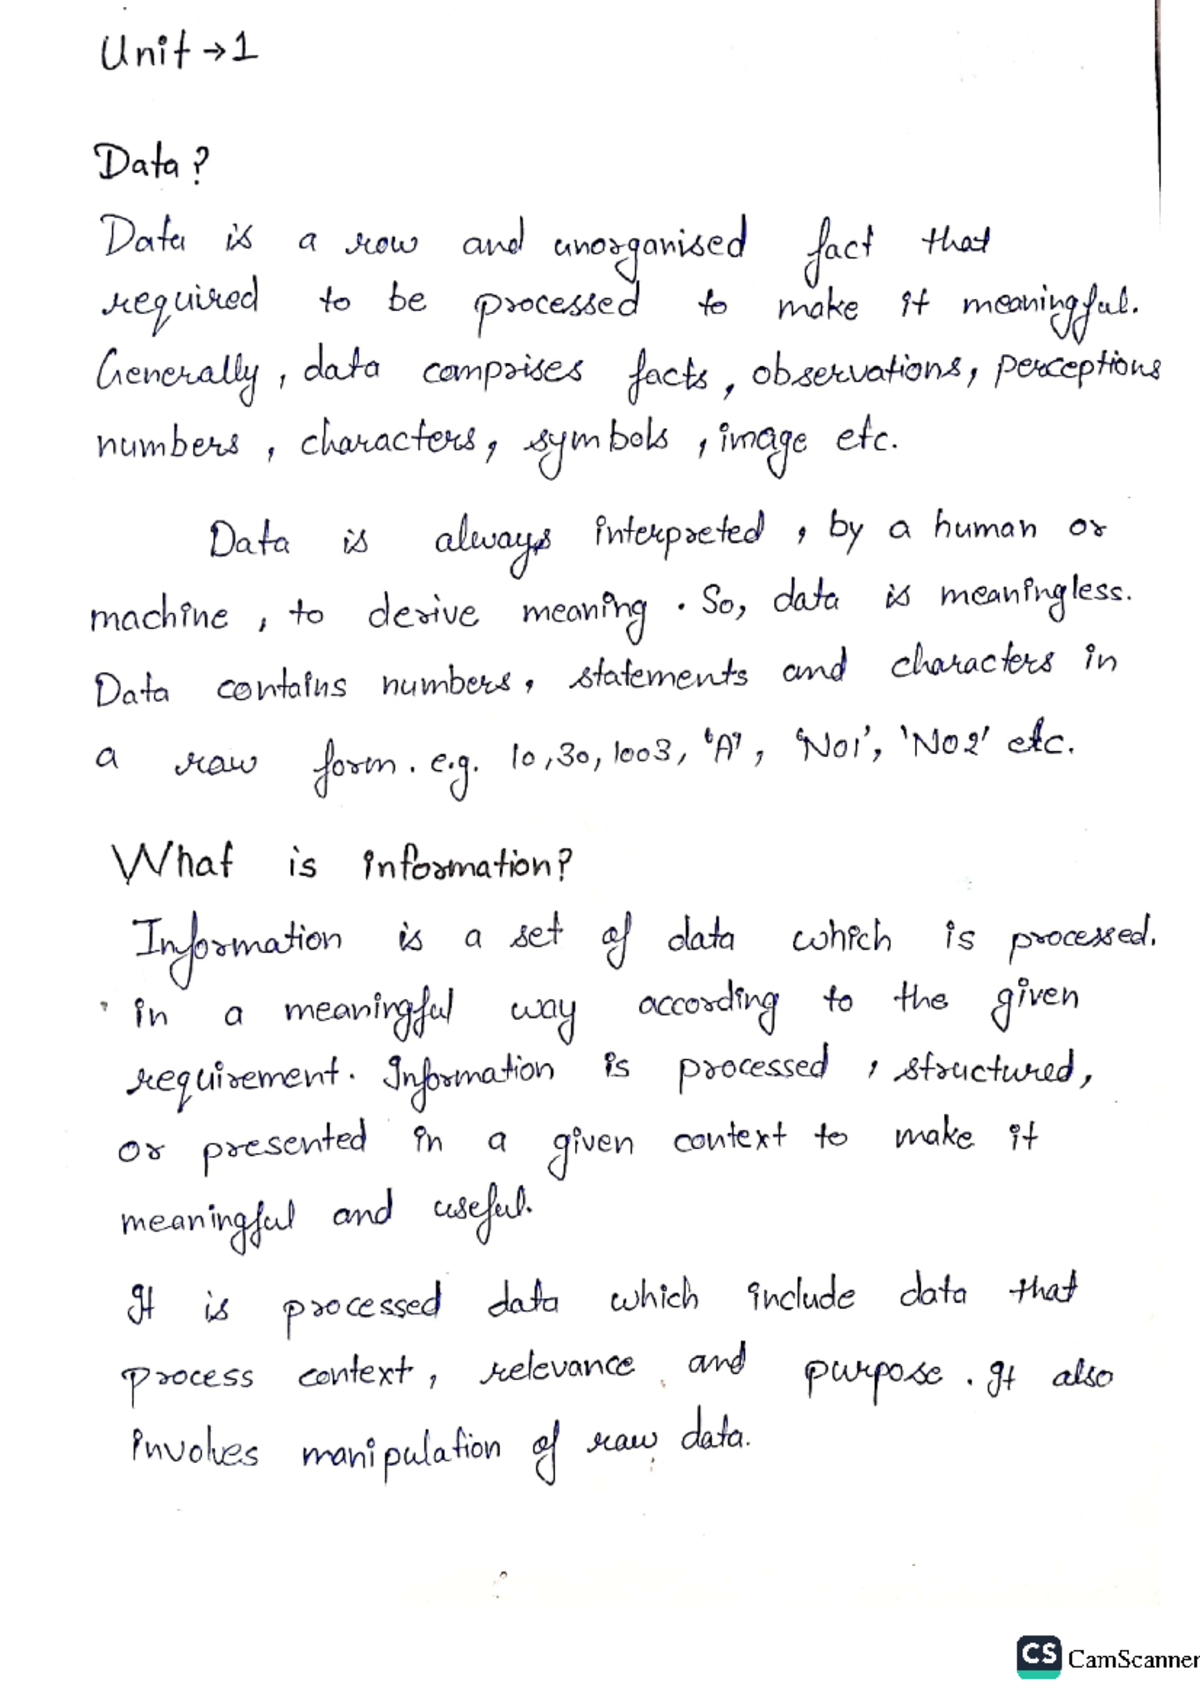 Unit → 1
Data?
Data is a row and unorganised fact that
required to be processed to make it meaningful.
Generally, data comprises facts, observations, perceptions
numbers, characters, symbols, image etc.
Data is always interpreted, by a human or
machine, to derive meaning. So, data is meaningless.
Data contains numbers, statements and characters in
a raw form. e.g. 10,30,1003, 'A', 'No1', 'No2' etc.
What is information?
Information is a set of data which is processed.
in a meaningful way according to the given
requirement. Information is processed, structured,
or presented in a given context to make it
meaningful and useful.
It is processed data which include data that
process context, relevance and purpose. It also
involves manipulation of raw data.
CS CamScanner